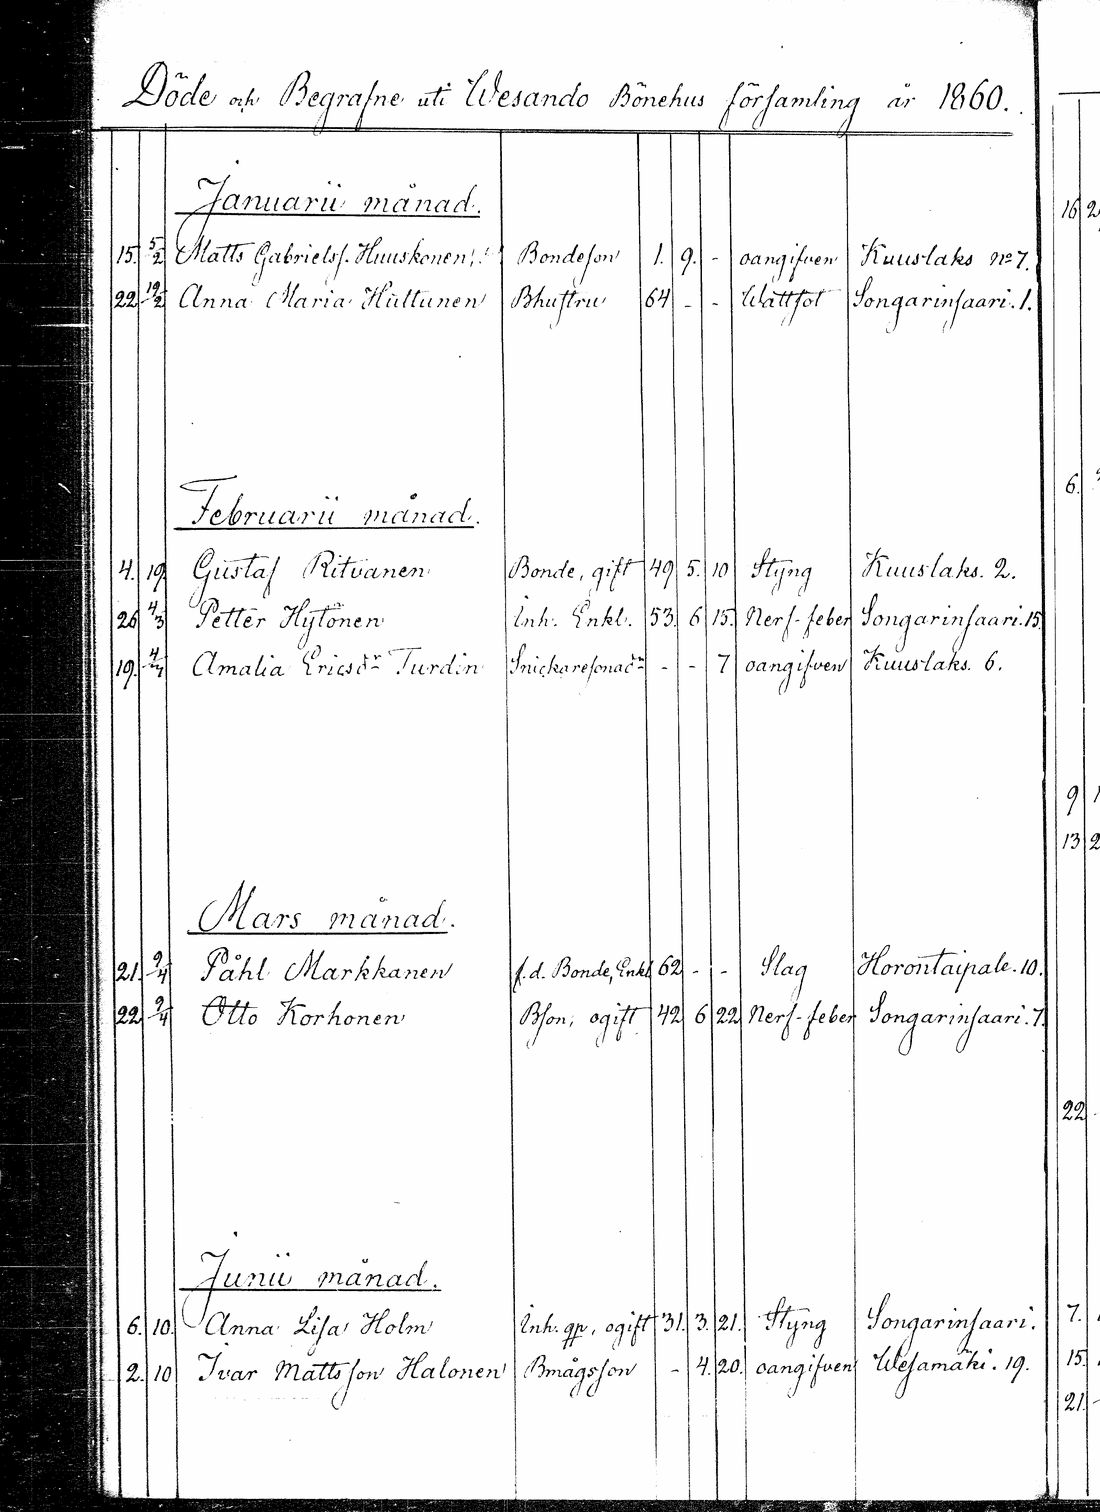 Döde och Begrafne uti Wesando Bönehus församling år 1860.
Januarii månad.
15. 5/2 Matts Gabrielss. Huuskonen, Bondeson 1. 9. - oangifven Kuuslaks No 7.
22 19/2 Anna Maria Hultunen Bhustru 64 - - Wattsot Songarinsaari. 1.
Februarii månad.
4. 19 Gustaf Ritvanen Bonde, gift 49 5. 10 Styng Kuuslaks. 2.
26 4/3 Petter Hytönen Inh. Enkl. 53. 6 15. Nerf-feber Songarinsaari. 15
19. Amalia Ericsdr Turdin Snickaresonadr - - 7 oangifven Kuuslaks. 6.
Mars månad.
21. 9/4 Påhl Markkanen f.d. Bonde, Enkl 62 - - Slag Horontaipale. 10.
22 9/4 Otto Korhonen Bson, ogift 42 6 22 Nerf-feber Songarinsaari. 7.
Junii månad.
6. 10. Anna Lisa Holm Inh. qp, ogift 31. 3. 21. Styng Songarinsaari.
2. 10 Ivar Mattsson Halonen Bmågsson - 4. 20. oangifven Wesamäki. 19.
16 2
6.
9 1
13 2
22
7.
15.
21.